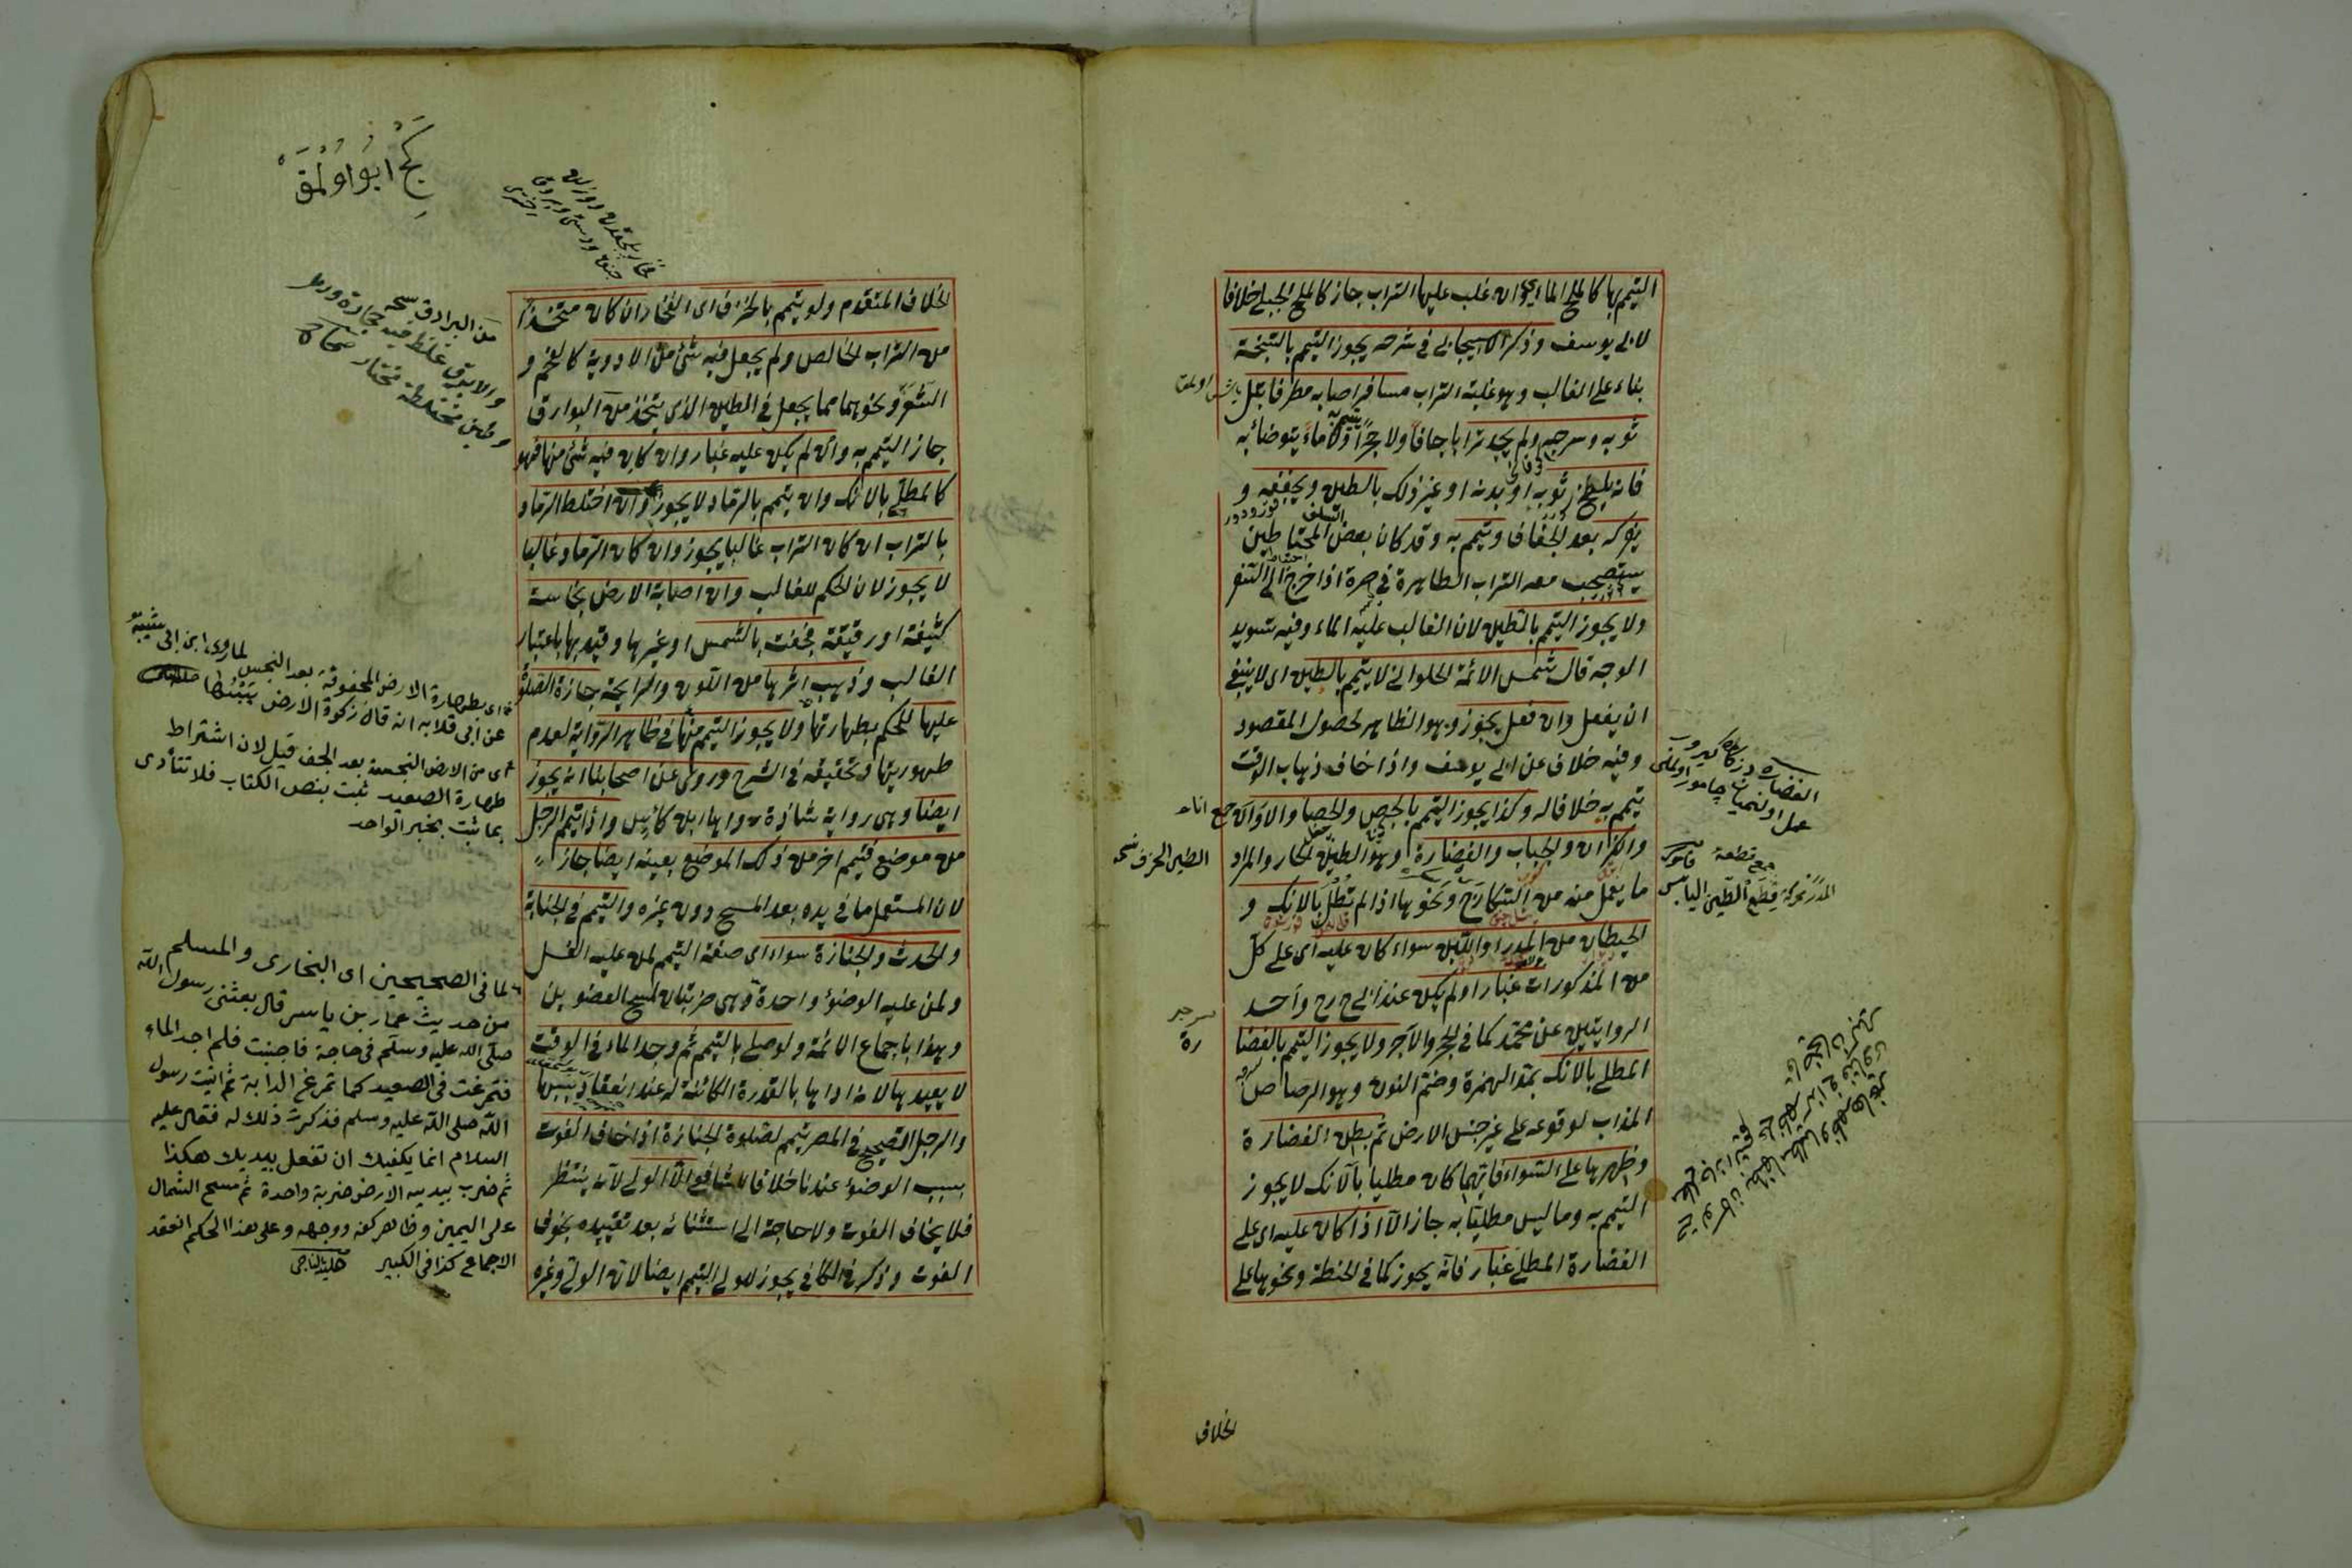 التيمم بها كالملح المائي وان غلب عليها التراب جاز كالملح الجبلي خلافا
لابي يوسف وذكر الاسبيجابي في شرحه يجوز التيمم بالسبخة
بناء على الغالب وهو غلبة التراب مسافر اصابه مطر فابتل
ثوبه وسرجه ولم يجد ترابا جافا ولا حجرا ولا ماء يتوضأ به
فانه يلطخ ثوبه او بدنه او غير ذلك بالطين ويجففه و
يفركه بعد الجفاف ويتيمم به وقد كان بعض المحتاطين
يستصحب معه التراب الطاهرة في صرة اذا خرج الى السفر
ولا يجوز التيمم بالطين لان الغالب عليه الماء وفيه تسويد
الوجه قال شمس الائمة الحلواني لا يتيمم بالطين اى لا ينبغي
ان يفعل وان فعل يجوز وهو الظاهر لحصول المقصود
وفيه خلاف عن ابي يوسف واذا خاف ذهاب الوقت
تيمم به خلافا له وكذا يجوز التيمم بالجص والحصا والاواني
والكيزان والحباب والغضارة وهو الطين الحار والمراد
ما يعمل منه من السكارج ونحوها اذا لم تطل بالانك و
الحيطان من المدر او اللبن سواء كان عليه اى على كل
من المذكورات غبار او لم يكن عند ابي ح رح واحد
الروايتين عن محمد كما في الحجر والآجر ولا يجوز التيمم بالغضا
رة
المطلي بالانك بمد الهمزة وضم النون وهو الرصاص
المذاب لوقوعه على غير جنس الارض ثم بطن الغضارة
وظهرها على السواء فايهما كان مطليا بالآنك لا يجوز
التيمم به وما ليس مطليا به جاز الا اذا كان عليه اى على
الغضارة المطلي غبار فانه يجوز كما في الحنطة ونحوها على
جمع اناء
الطين الحزف نسخه
جمع قطعة قاموس
المدر محركة قطع الطين اليابس
الخلاف
الخلاف المتقدم ولو تيمم بالخزف اى الفخار ان كان متخذا
من التراب الخالص ولم يجعل فيه شئ من الادوية كالفحم و
الشعر ونحوهما مما يجعل في الطين الذى يتخذ من البوارق
جاز التيمم به وان لم يكن عليه غبار وان كان فيه شئ منها فهو
كالمطلي بالانك وان تيمم بالرماد لا يجوز وان اختلط الرماد
بالتراب ان كان التراب غالبا يجوز وان كان الرماد غالبا
لا يجوز لان الحكم للغالب وان اصابة الارض نجاسة
كثيفة او رقيقة فجفت بالشمس او غيرها وقيد بها باعتبار
الغالب وذهب اثرها من اللون والرايحة جازة الصلوة
عليها للحكم بطهارتها ولا يجوز التيمم منها في ظاهر الرواية لعدم
طهوريتها وتحقيقه في الشرح وروى عن اصحابنا انه يجوز
ايضا وهى رواية شاذة رواها ابن كاس واذا تيمم الرجل
من موضع فتيمم اخر من ذلك الموضع بعينه ايضا جاز
لان المستعمل ما في يده بعد المسح دون غيره والتيمم في الجنابة
والحدث والجنازة سواء اى صفة التيمم لمن عليه الغسل
ولمن عليه الوضوء واحدة وهى ضربتان لمسح العضوين
وهذا باجماع الائمة ولو صلى بالتيمم ثم وجد الماء في الوقت
لا يعيدها لانه اداها بالقدرة الكائنة له عند انعقاد سببها
والرجل الصحيح في المصر يتيمم لصلوة الجنازة اذا خاف الفوت
بسبب الوضوء عندنا خلافا للشافعي الا الولي لانه ينتظر
فلا يخاف الفوت ولا حاجة الى استثنائه بعد تقييده بخوف
الفوت وذكر في الكافي يجوز للولي التيمم ايضا لان الولي وغيره
من البرادق نسخه
والابرق غلظ فيه حجارة ورمل
وطين مختلطة مختار صحاح
اى بطهارة الارض المجفوفة بعد النجس لما روى ابن ابى شيبة
عن ابى قلابة انه قال زكوة الارض يبسها
اى من الارض النجسة بعد الجف قيل لان اشتراط
طهارة الصعيد ثبت بنص الكتاب فلا تتأدى
بما ثبت بخبر الواحد
لما في الصحيحين اى البخارى والمسلم
من حديث عمار بن ياسر قال بعثنى رسول الله
صلى الله عليه وسلم في حاجة فاجنبت فلم اجد الماء
فتمرغت في الصعيد كما تمرغ الدابة ثم اتيت رسول
الله صلى الله عليه وسلم فذكرت ذلك له فقال عليه
السلام انما يكفيك ان تفعل بيديك هكذا
ثم ضرب بيديه الارض ضربة واحدة ثم مسح الشمال
على اليمين وظاهر كفه ووجهه وعلى هذا الحكم انعقد
الاجماع كذا في الكبير